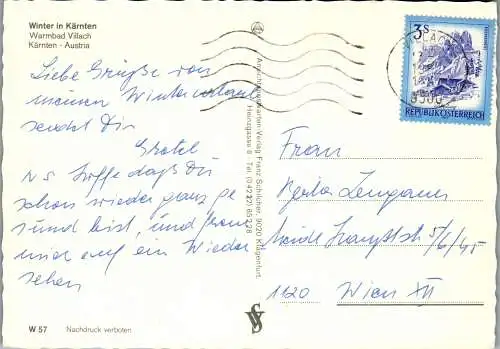 Winter in Kärnten
Warmbad Villach
Kärnten - Austria
Liebe Grüße von
meinem Winterurlaub
sendet Dir
Gretel
NS hoffe daß Du
schon wieder ganz ge
sund bist, und freu
mich auf ein Wieder
sehen
W 57 Nachdruck verboten
Ansichtskarten-Verlag Franz Schilcher, 9020 Klagenfurt,
Heinzgasse 8 Tel. (0 42 22) 85 2 28
3S
REPUBLIK ÖSTERREICH
VILLACH
9500
Frau
Berta
5/6/45
1120 Wien XII